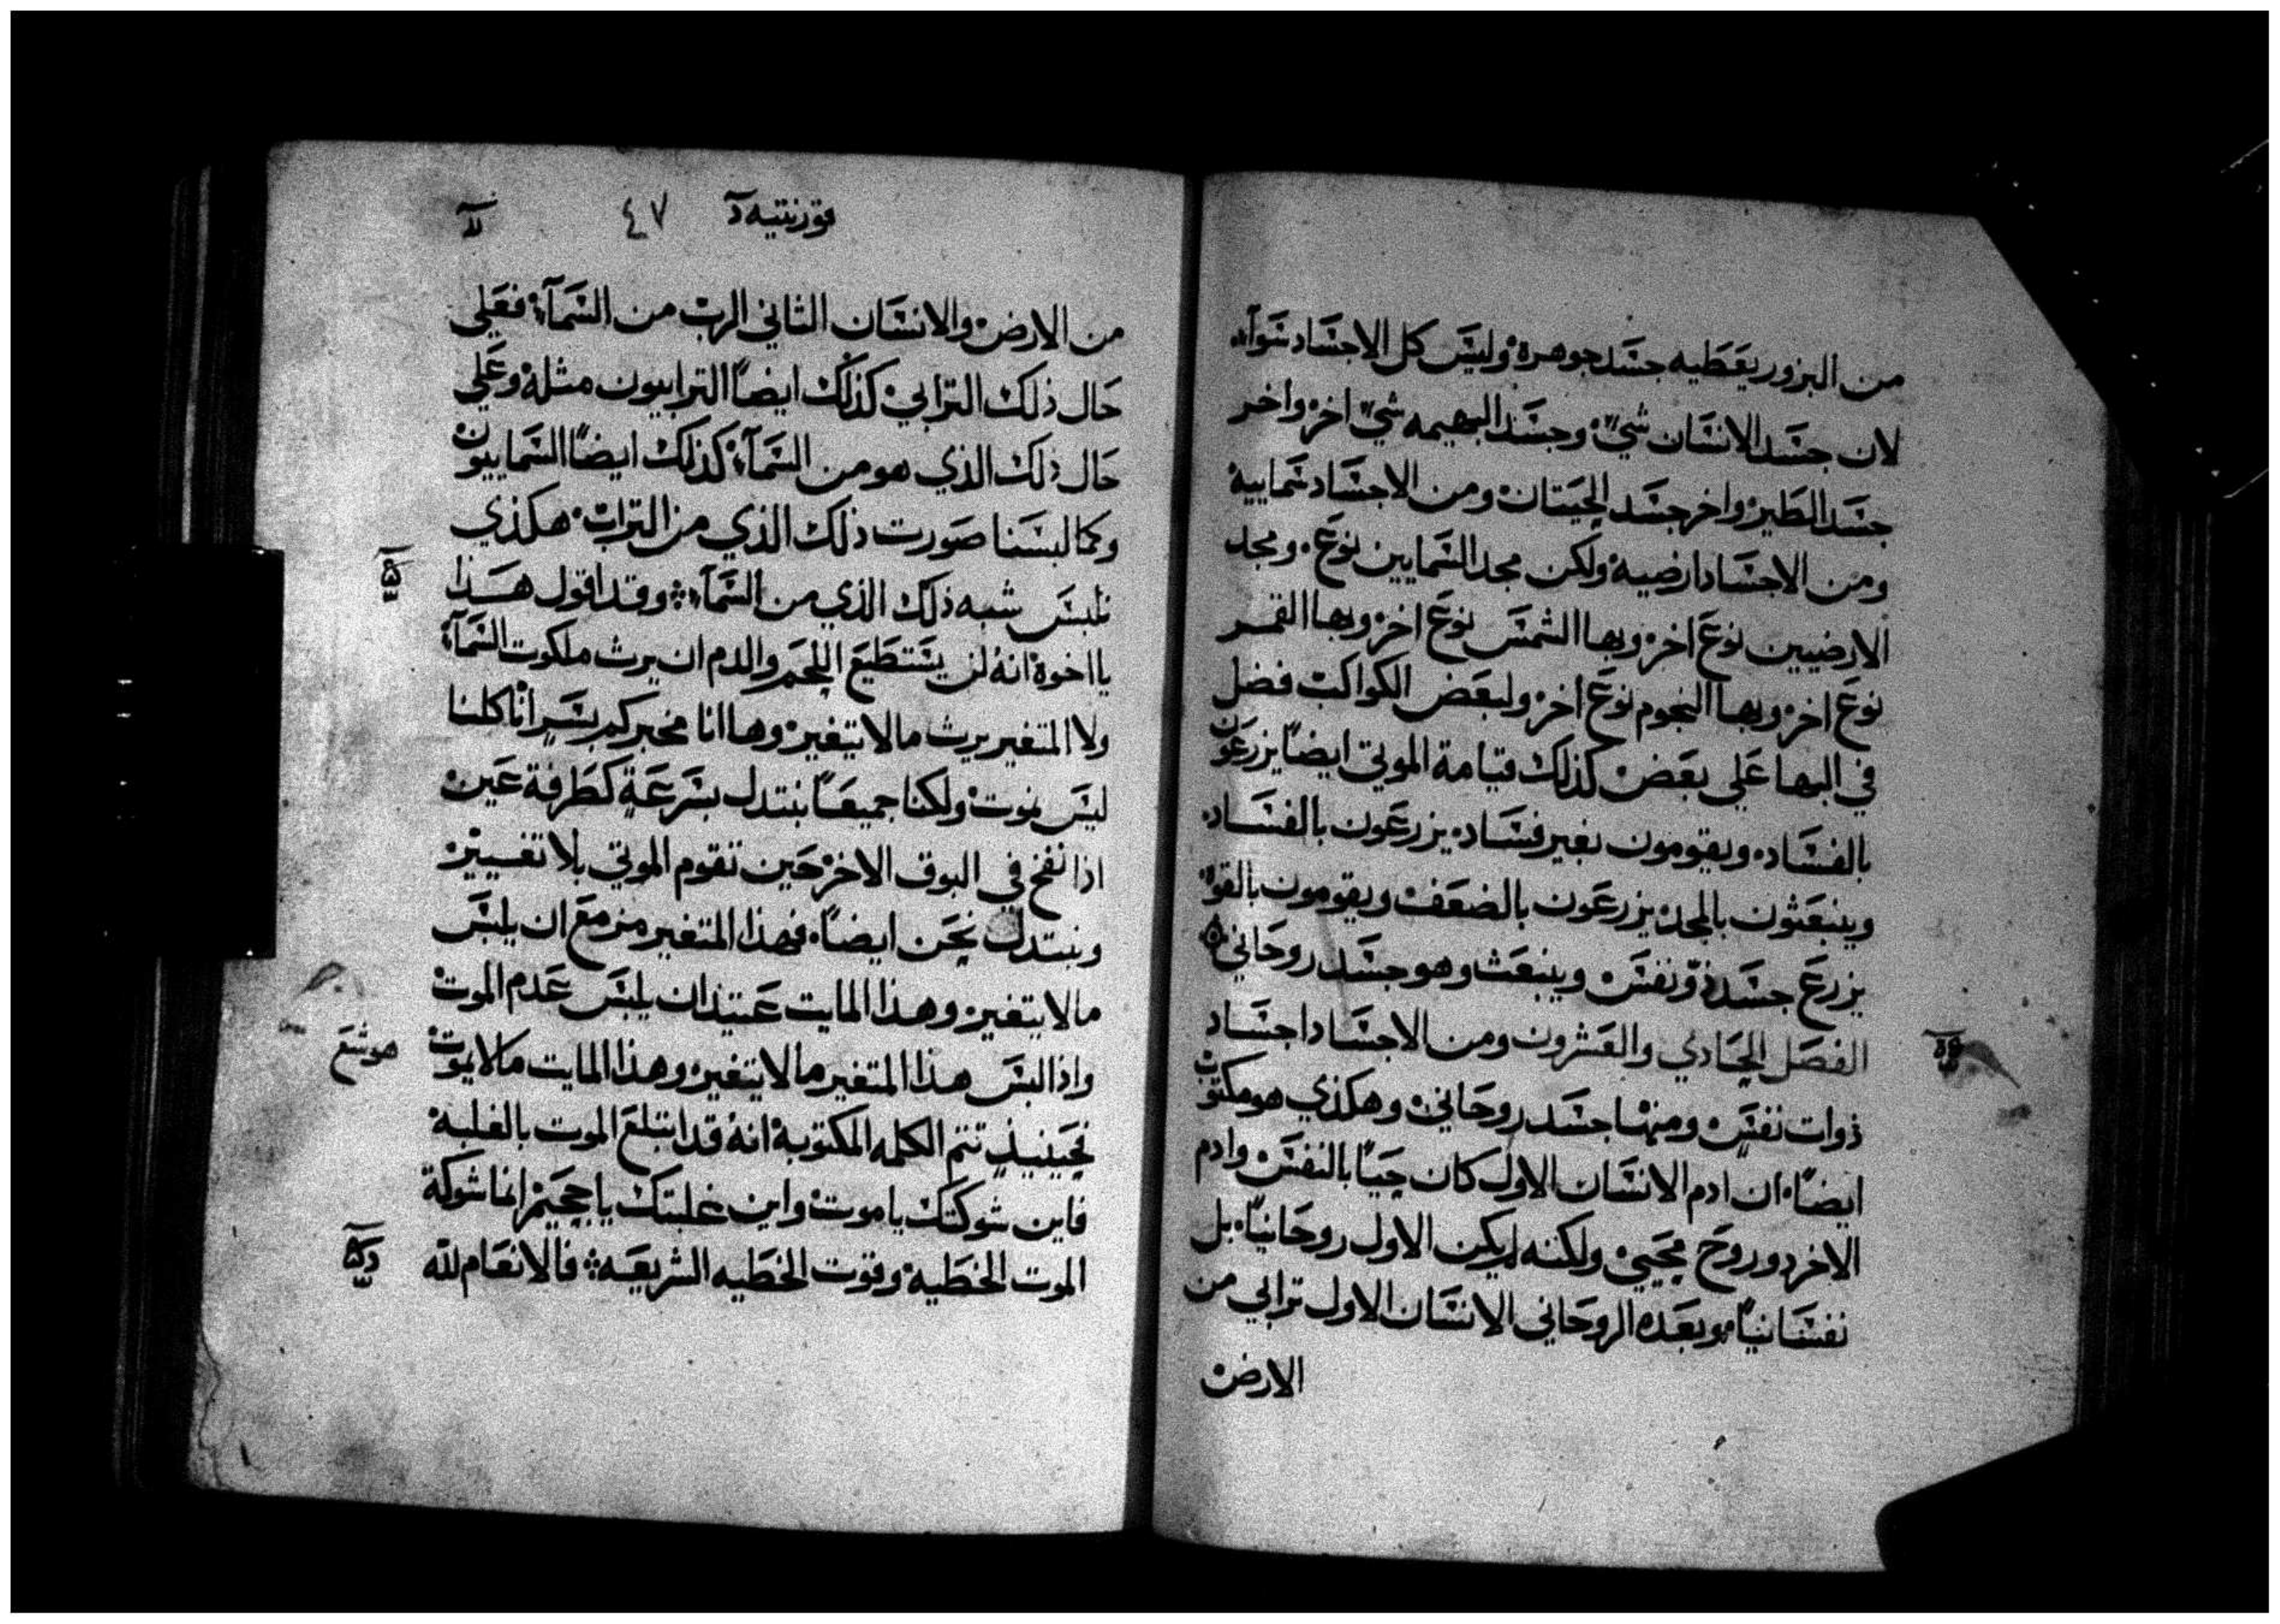 من البزور يعَطيه جسَد جوهره وليسَ كل الاجسَاد سَوآء
لان جسَد الانسَان شيٌ وجسَد البهيمه شيٌ اخر واخر
جسَد الطَير واخر جسَد الحيَتان ومن الاجسَاد سَماييه
ومن الاجسَاد ارضيه ولكن مجد السَمايين نوعَ ومجد
الارضيين نوعَ اخر وبها الشمسَ نوعَ اخر وبها القمر
نوعَ اخر وبها النجوم نوعَ اخر ولبعَض الكواكب فضل
في البها عَلي بعَض كذلك قيامة الموتي ايضاً يزرعَون
بالفسَاد ويقومون بغير فسَاد يزرعَون بالفسَاد
وينبعَثون بالمجد يزرعَون بالضعَف ويقومون بالقوه
يزرعَ جسَد ذو نفسَ وينبعَث وهو جسَد روحَاني
الفصَل الحَادي والعَشرون ومن الاجسَاد اجسَاد
ذوات نفسَ ومنها جسَد روحَاني وهكذي هو مكتوب
ايضاً ان ادم الانسَان الاول كان حَياً بالنفسَ وادم
الاخر دو روحَ محَيي ولكنه لم يكن الاول روحَانياً بل
نفسَانياً وبعَده الروحَاني الانسَان الاول ترابي من
الارض
قورنتيه دٓ ٤٧
من الارض والانسَان الثاني الرب من السَمآء فعَلي
حَال ذلك الترابي كذلك ايضاً الترابيون مثله وعَلي
حَال ذلك الذي هو من السَمآء كذلك ايضاً السَماييون
وكما لبسَنا صَورت ذلك الذي من التراب هكذي
نلبسَ شبه ذلك الذي من السَمآء وقد اقول هَذا
يا اخوة انهُ لن يسَتطَيعَ اللحَم والدم ان يرث ملكوت السَمآء
ولا المتغير يرث ما لا يتغير وها انا مخبركم بسَرٍ انا كلنا
ليسَ نموت ولكنا جميعَاً نبتدل بسَرعَةٍ كطَرفة عَين
اذا نفخ في البوق الاخر حَين تقوم الموتي بلا تغيير
ونبتدل نحَن ايضاً فهذا المتغير مزمعَ ان يلبسَ
ما لا يتغير وهذا المايت عَتيد ان يلبسَ عَدم الموت
واذا لبسَ هذا المتغير ما لا يتغير وهذا المايت ما لا يموت
هوشعَ
فحَينيذٍ تتم الكلمه المكتوبه انهُ قد ابتلعَ الموت بالغلبه
فاين شوكتك يا موت واين غلبتك يا جحَيم انما شوكة
الموت الخطَيه وقوت الخطَيه الشريعَه فالانعَام لله